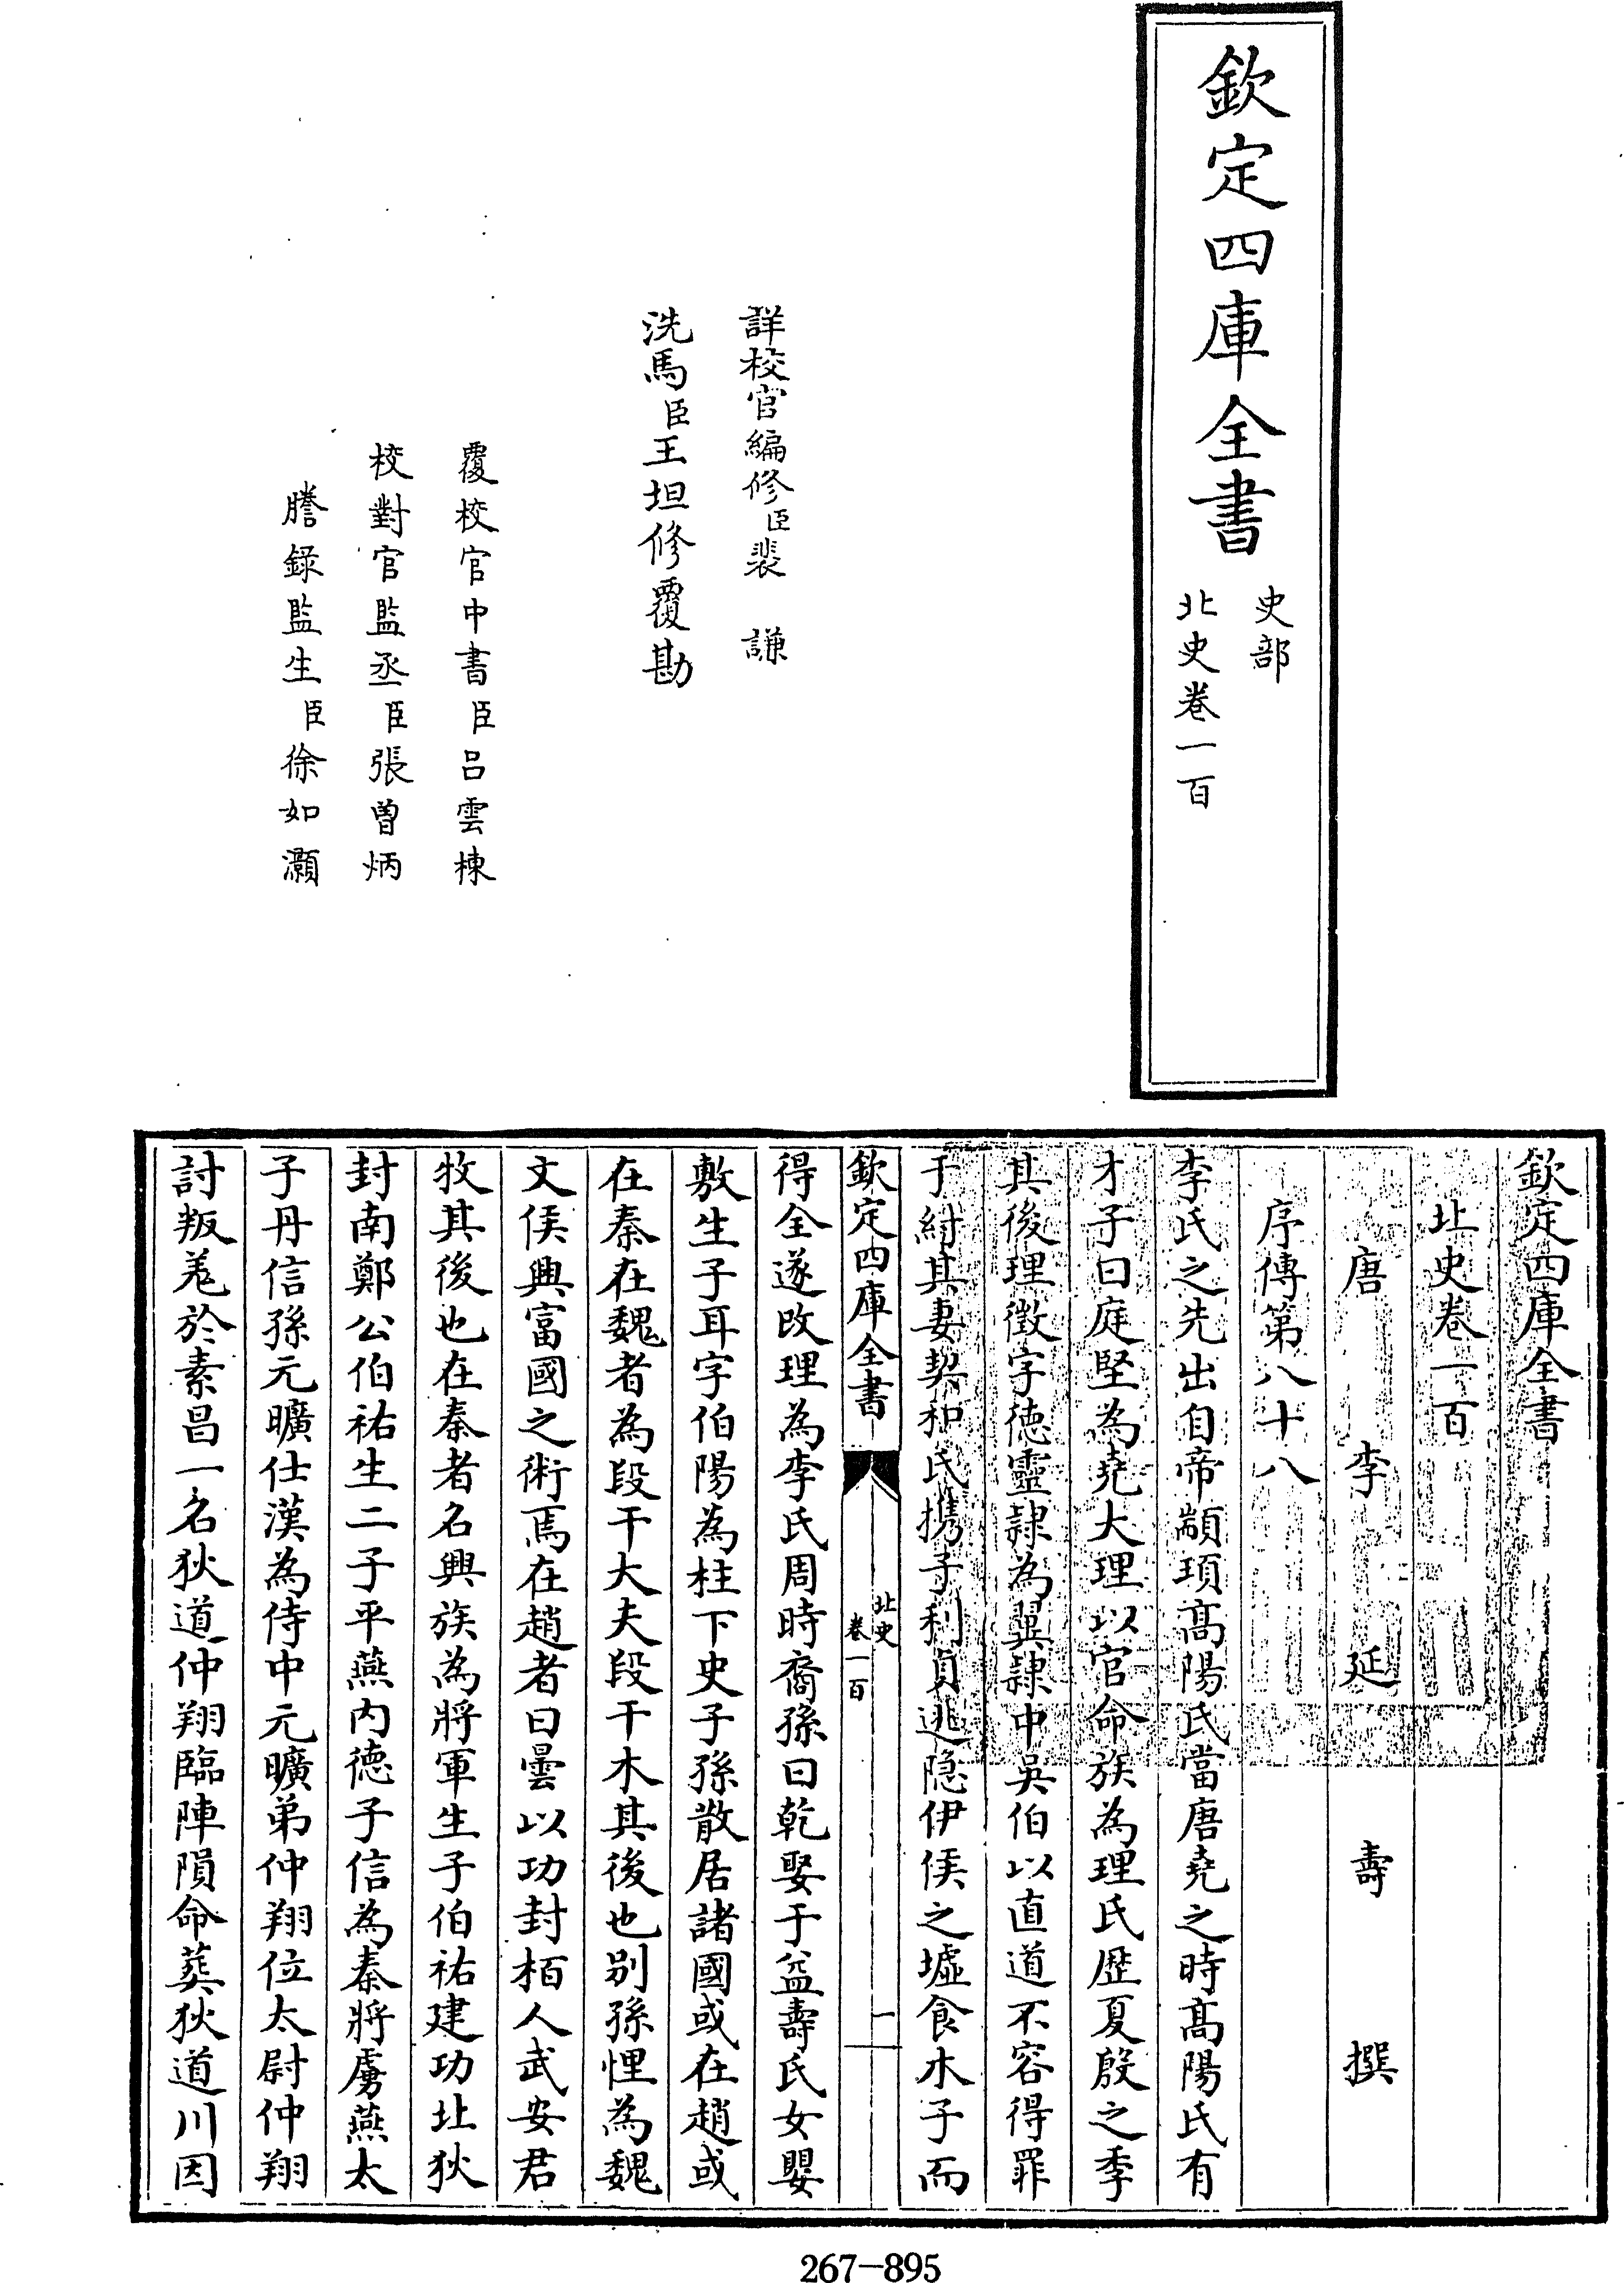 欽定四庫全書
史部
北史卷一百
詳校官編修臣裴謙
洗馬臣王坦修覆勘
覆校官中書臣呂雲棟
校對官監丞臣張曽炳
謄錄監生臣徐如灝
欽定四庫全書
北史卷一百
唐李延壽撰
序傳第八十八
李氏之先出自帝顓頊髙陽氏當唐堯之時髙陽氏有
才子曰庭堅為堯大理以官命族為理氏歴夏殷之季
其後理徴字徳靈隷為翼隷中吳伯以直道不容得罪
于紂其妻契和氏攜子利貞逃隱伊侯之墟食木子而
欽定四庫全書
北史
卷一百
一
得全遂改理為李氏周時裔孫曰乾娶于益壽氏女嬰
敷生子耳字伯陽為柱下史子孫散居諸國或在趙或
在秦在魏者為段干大夫段干木其後也別孫悝為魏
文侯興富國之術焉在趙者曰曇以功封栢人武安君
牧其後也在秦者名興族為將軍生子伯祐建功北狄
封南鄭公伯祐生二子平燕內徳子信為秦將虜燕太
子丹信孫元曠仕漢為侍中元曠弟仲翔位太尉仲翔
討叛羌於素昌一名狄道仲翔臨陣隕命葬狄道川因
267-895